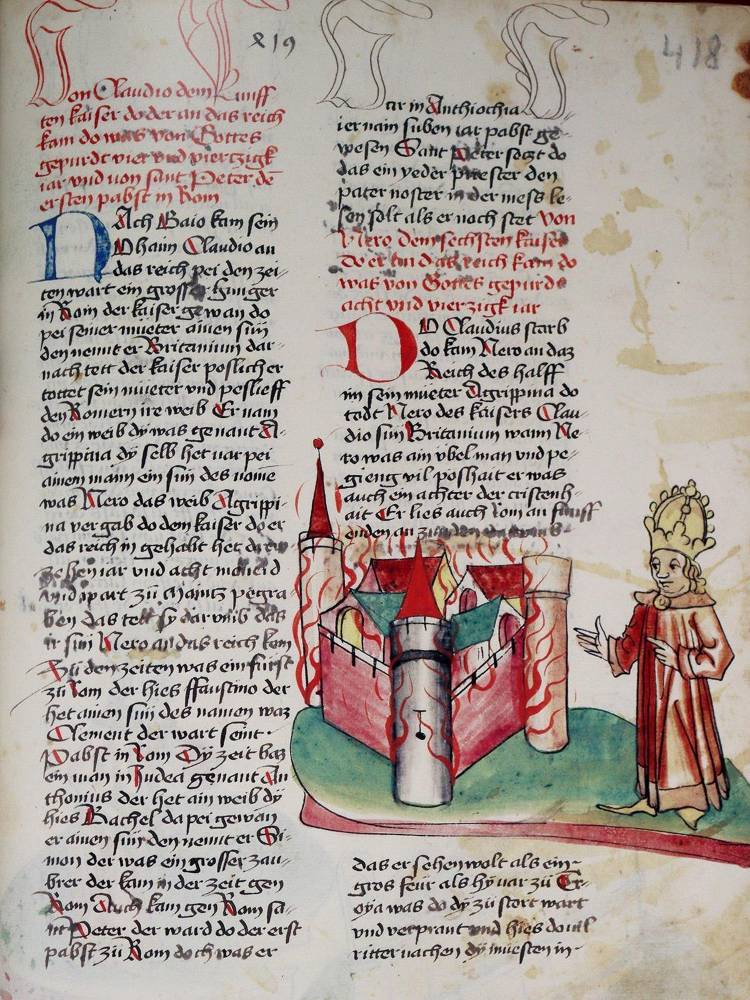 819
418
Von Claudio dem Funff
ten kaiser do der an das reich
kam do was von Gottes
gepurdt vier vnd viertzigk
iar vnd von sant Peter de
ersten pabst in Rom
DAch Gaio kam sein
Ohaim Claudio an
das reich pei den zei-
ten wart ein grosser hunger
in Rom der kaiser gewan do
pei seiner mueter ainen sun
den nennt er Britanium dar-
nach tett der kaiser poslicher
tottet sein mueter vnd peslieff
den Romern ire weib Er nam
do ein weib dy was genant A-
grippina dy selb het var pei
ainem mann ein sun des nome
was Nero das weib Agrippi-
na vergab do dem kaiser do er
das reich in gehabt het drew
zehen iar vnd acht moneid
vnd wart zu Maintz pegra
ben das tett sy darumb das
ir sun Nero an das reich kem
Zu den zeiten was ein furst
zu Rom der hies ffaustino der
het ainen sun des namen waz
Clement der wart seint
Pabst in Rom Dy zeit was
ein man in Judea genant An
thonius der het ain weib dy
hies Rachel da pei gewan
er ainen sun den nennt er Si-
mon der was ein grosser zau-
brer der kam in der zeit gen
Rom Auch kam gen Rom sa-
nt Peter der ward do der erst
pabst zu Rom doch was er
var in Anthiochia
iernain suben iar pabst ge-
wesen Sant Peter sotzt do
das ein yeder priester den
pater noster in der mess le-
sen solt als er noch stet Von
Nero dem sechsten kaiser
Do er an das reich kam do
was von Gottes gepurde
acht vnd vierzigk iar
DO Claudius starb
do kam Nero an daz
Reich des halff
im sein mueter Agrippina do
todt Nero des kaisers Clau-
dio sun Britanium wann Ne-
ro was ain vbel man vnd pe-
gieng vil poshait er was
auch ein achter der cristenh-
ait Er lies auch Rom an funff
enden an
das er sehen wolt als ein
gros feur als hy var zu Tr-
oya was do dy zu stort wart
vnd verprant vnd hies do vil
ritter vachen dy muesten in